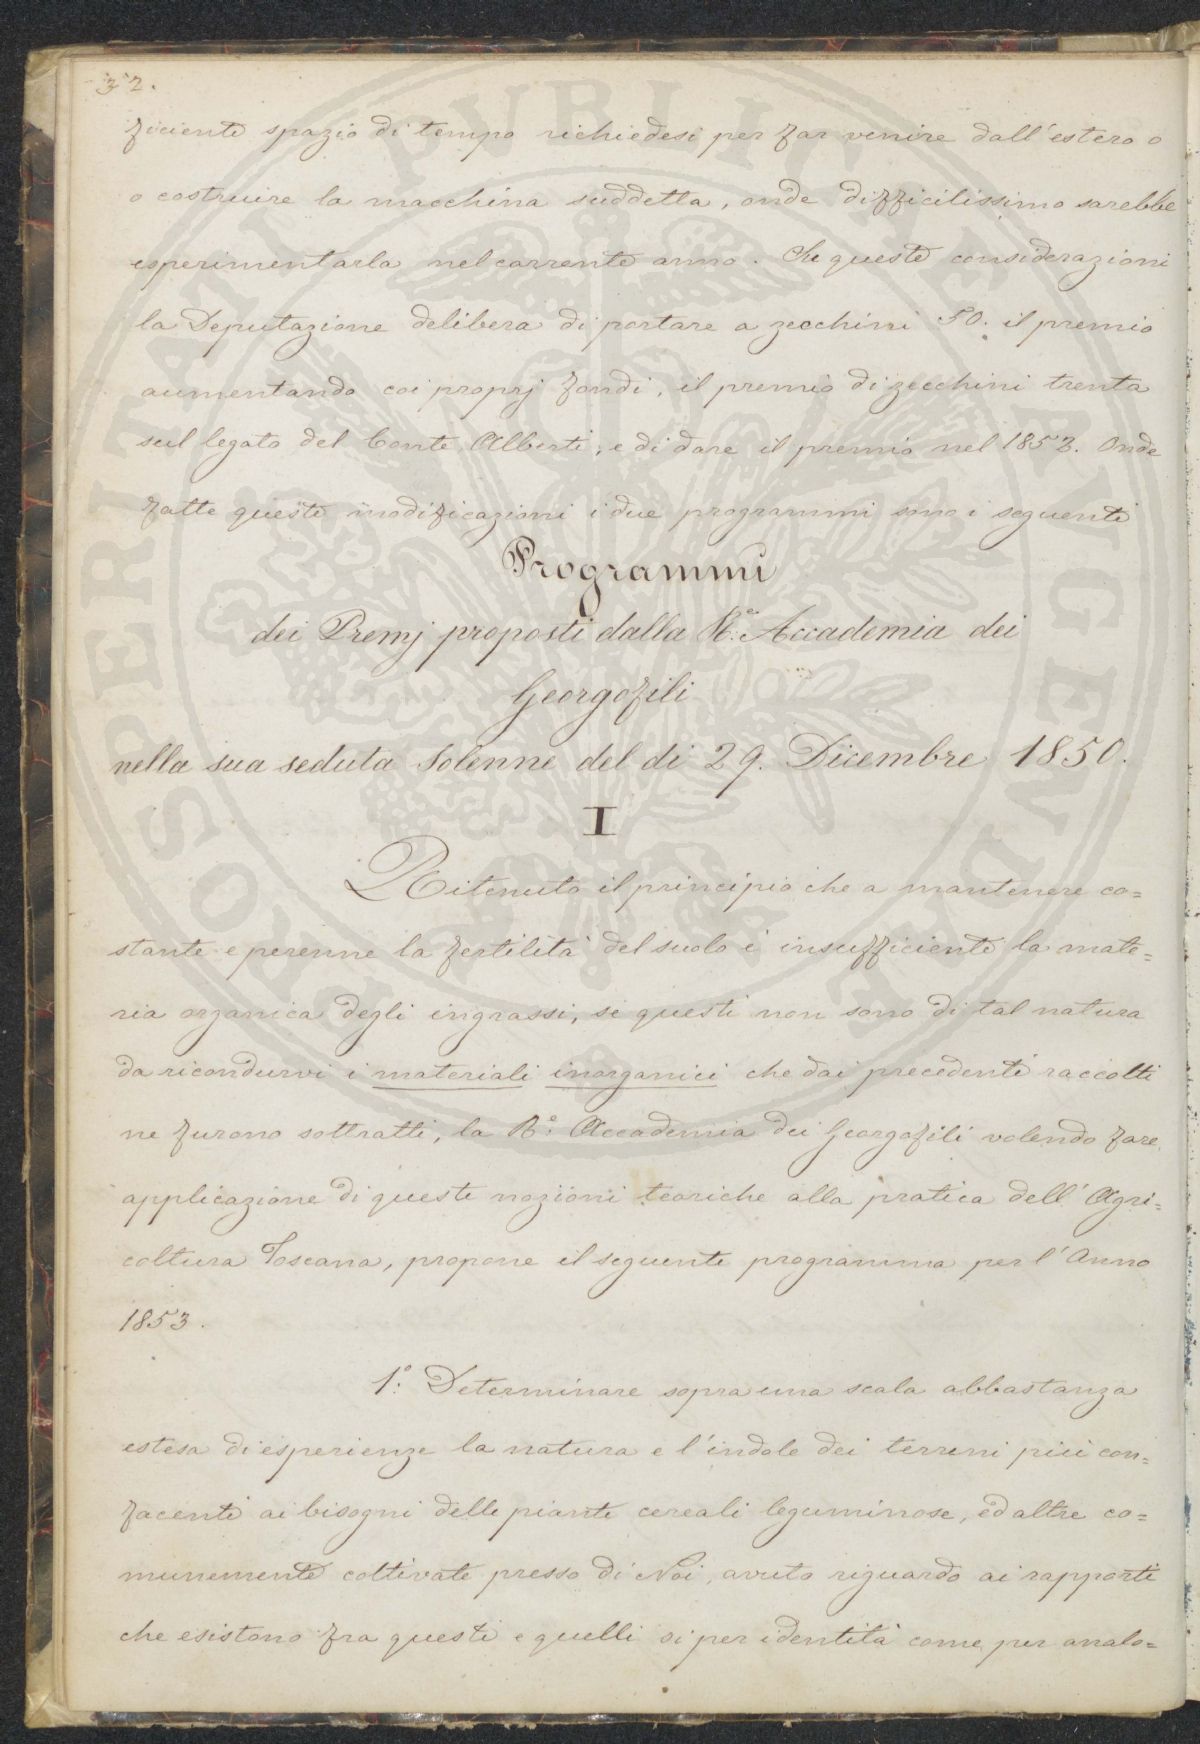 32.
ficiente spazio di tempo richiedesi per far venire dall'estero o
o costruire la macchina suddetta, onde difficilissimo sarebbe
esperimentarla nel corrente anno. Che queste considerazioni
la Deputazione delibera di portare a zecchini 50. il premio
aumentando coi proprj fondi, il premio di zecchini trenta
sul legato del Conte Alberti, e di dare il premio nel 1852. Onde
fatte queste modificazioni i due programmi sono i seguenti
Programmi
dei Premj proposti dalla R.e Accademia dei
Georgofili
nella sua seduta Solenne del di 29. Dicembre 1850.
I
Ritenuto il principio che a mantenere co=
stante e perenne la fertilità del suolo è insufficiente la mate=
ria organica degli ingrassi, se questi non sono di tal natura
da ricondurvi i materiali inorganici che dai precedenti raccolti
ne furono sottratti, la R.e Accademia dei Georgofili volendo fare
applicazione di queste nozioni teoriche alla pratica dell'Agri=
coltura Toscana, propone il seguente programma per l'Anno
1853.
1.o Determinare sopra una scala abbastanza
estesa di esperienze la natura e l'indole dei terreni più con=
facenti ai bisogni delle piante cereali leguminose, ed altre co=
munemente coltivate presso di Noi, avuto riguardo ai rapporti
che esistono fra questi e quelli si per identità come per analo=
PROSPERITATI PUBLICAE AUGENDAE